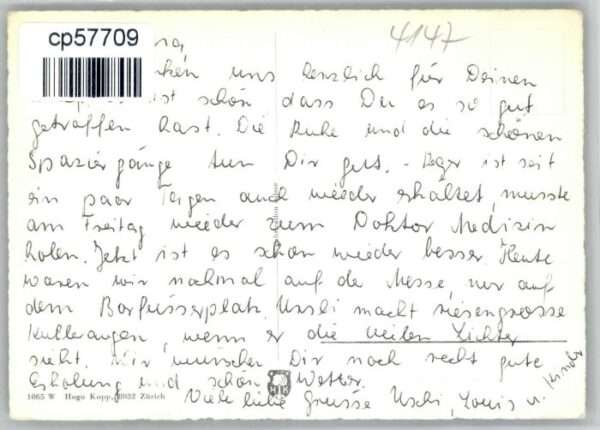 cp57709
4147
uns herzlich für Deinen
ist schön dass Du es so gut
getroffen hast. Die Ruhe und die schönen
Spaziergänge tun Dir gut. - Roger ist seit
ein paar Tagen auch wieder erkältet, musste
am Freitag wieder zum Doktor Medizin
holen. Jetzt ist es schon wieder besser. Heute
waren wir nochmal auf der Messe, nur auf
dem Barfüsserplatz. Ursli macht riesengrosse
Kulleraugen, wenn er die vielen Lichter
sieht. Wir wünschen Dir noch recht gute
Erholung und schön Wetter.
Viele liebe Grüsse Uschi, Louis u. Kinder
1065 W Hugo Kopp, 8032 Zürich